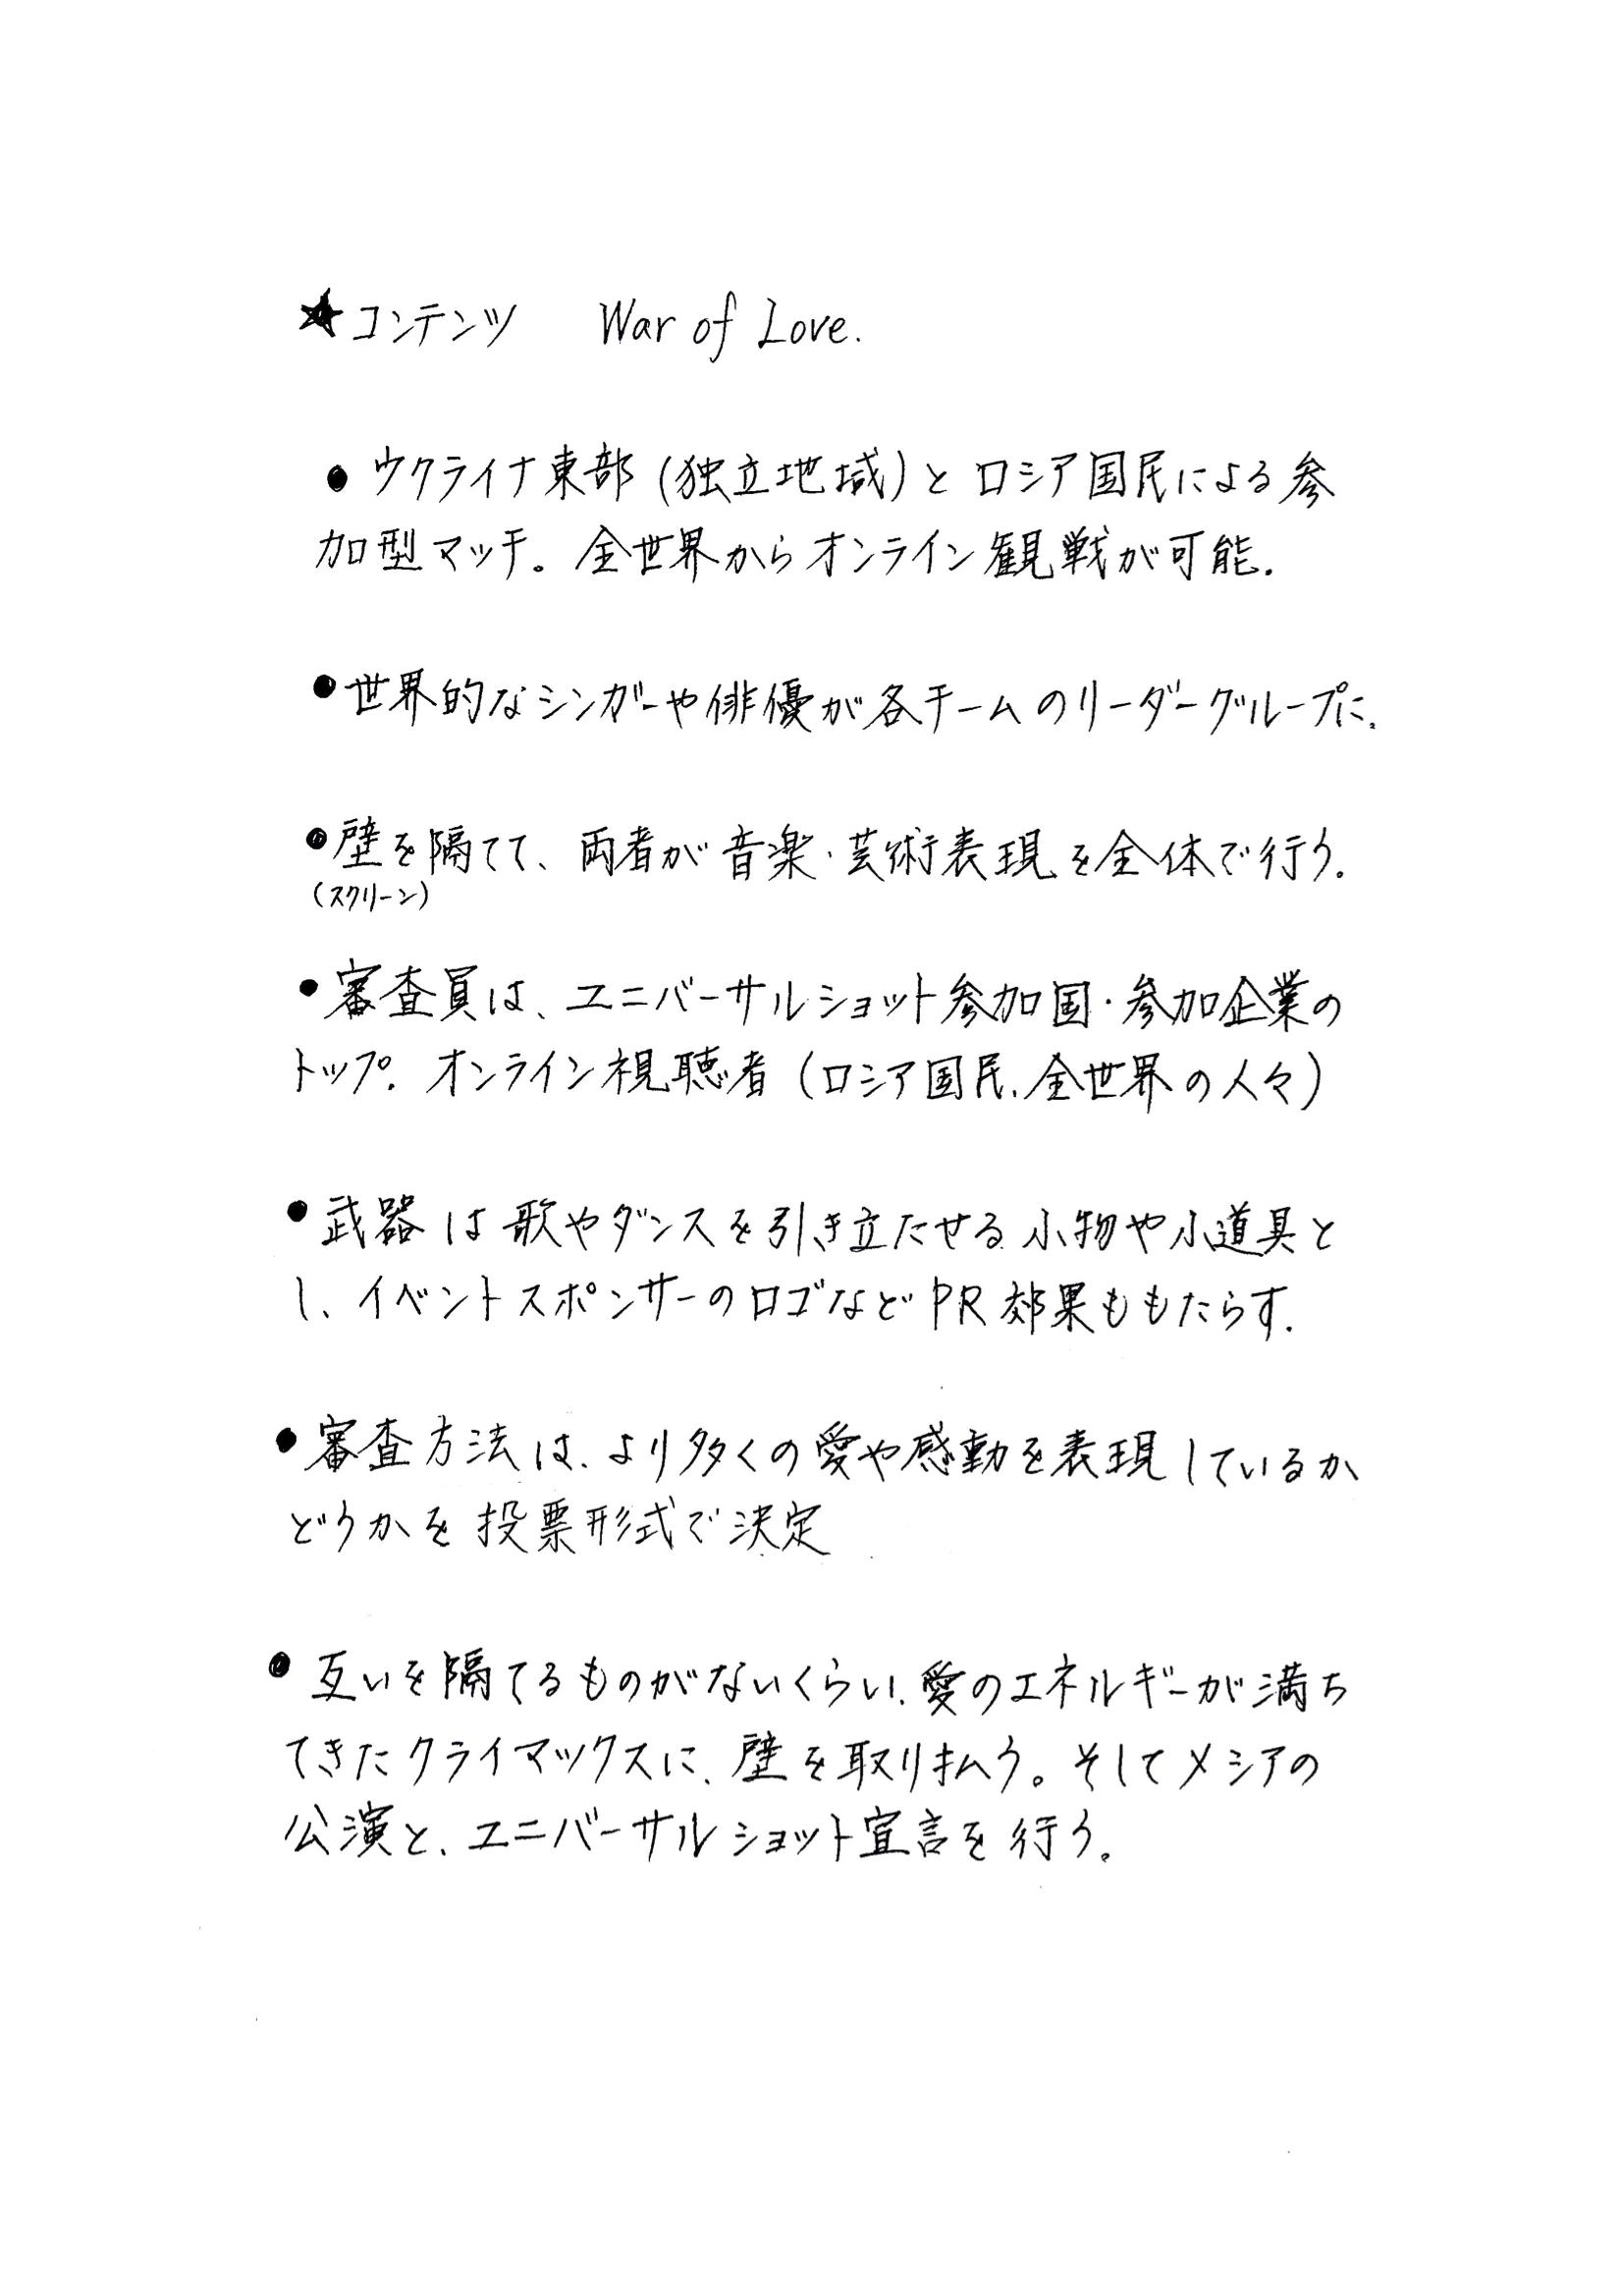 ★コンテンツ War of Love.
● ウクライナ東部(独立地域)とロシア国民による参
加型マッチ。全世界からオンライン観戦が可能.
●世界的なシンガーや俳優が各チームのリーダーグループに、
●壁を隔てて、両者が音楽・芸術表現を全体で行う.
(スクリーン)
●審査員は、ユニバーサルショット参加国・参加企業の
トップ. オンライン視聴者(ロシア国民、全世界の人々)
●武器は歌やダンスを引き立たせる小物や小道具と
し、イベントスポンサーのロゴなどPR効果ももたらす.
●審査方法は、より多くの愛や感動を表現しているか
どうかを投票形式で決定
●互いを隔てるものがないくらい、愛のエネルギーが満ち
てきたクライマックスに、壁を取り払う。そしてメシアの
公演と、ユニバーサルショット宣言を行う。